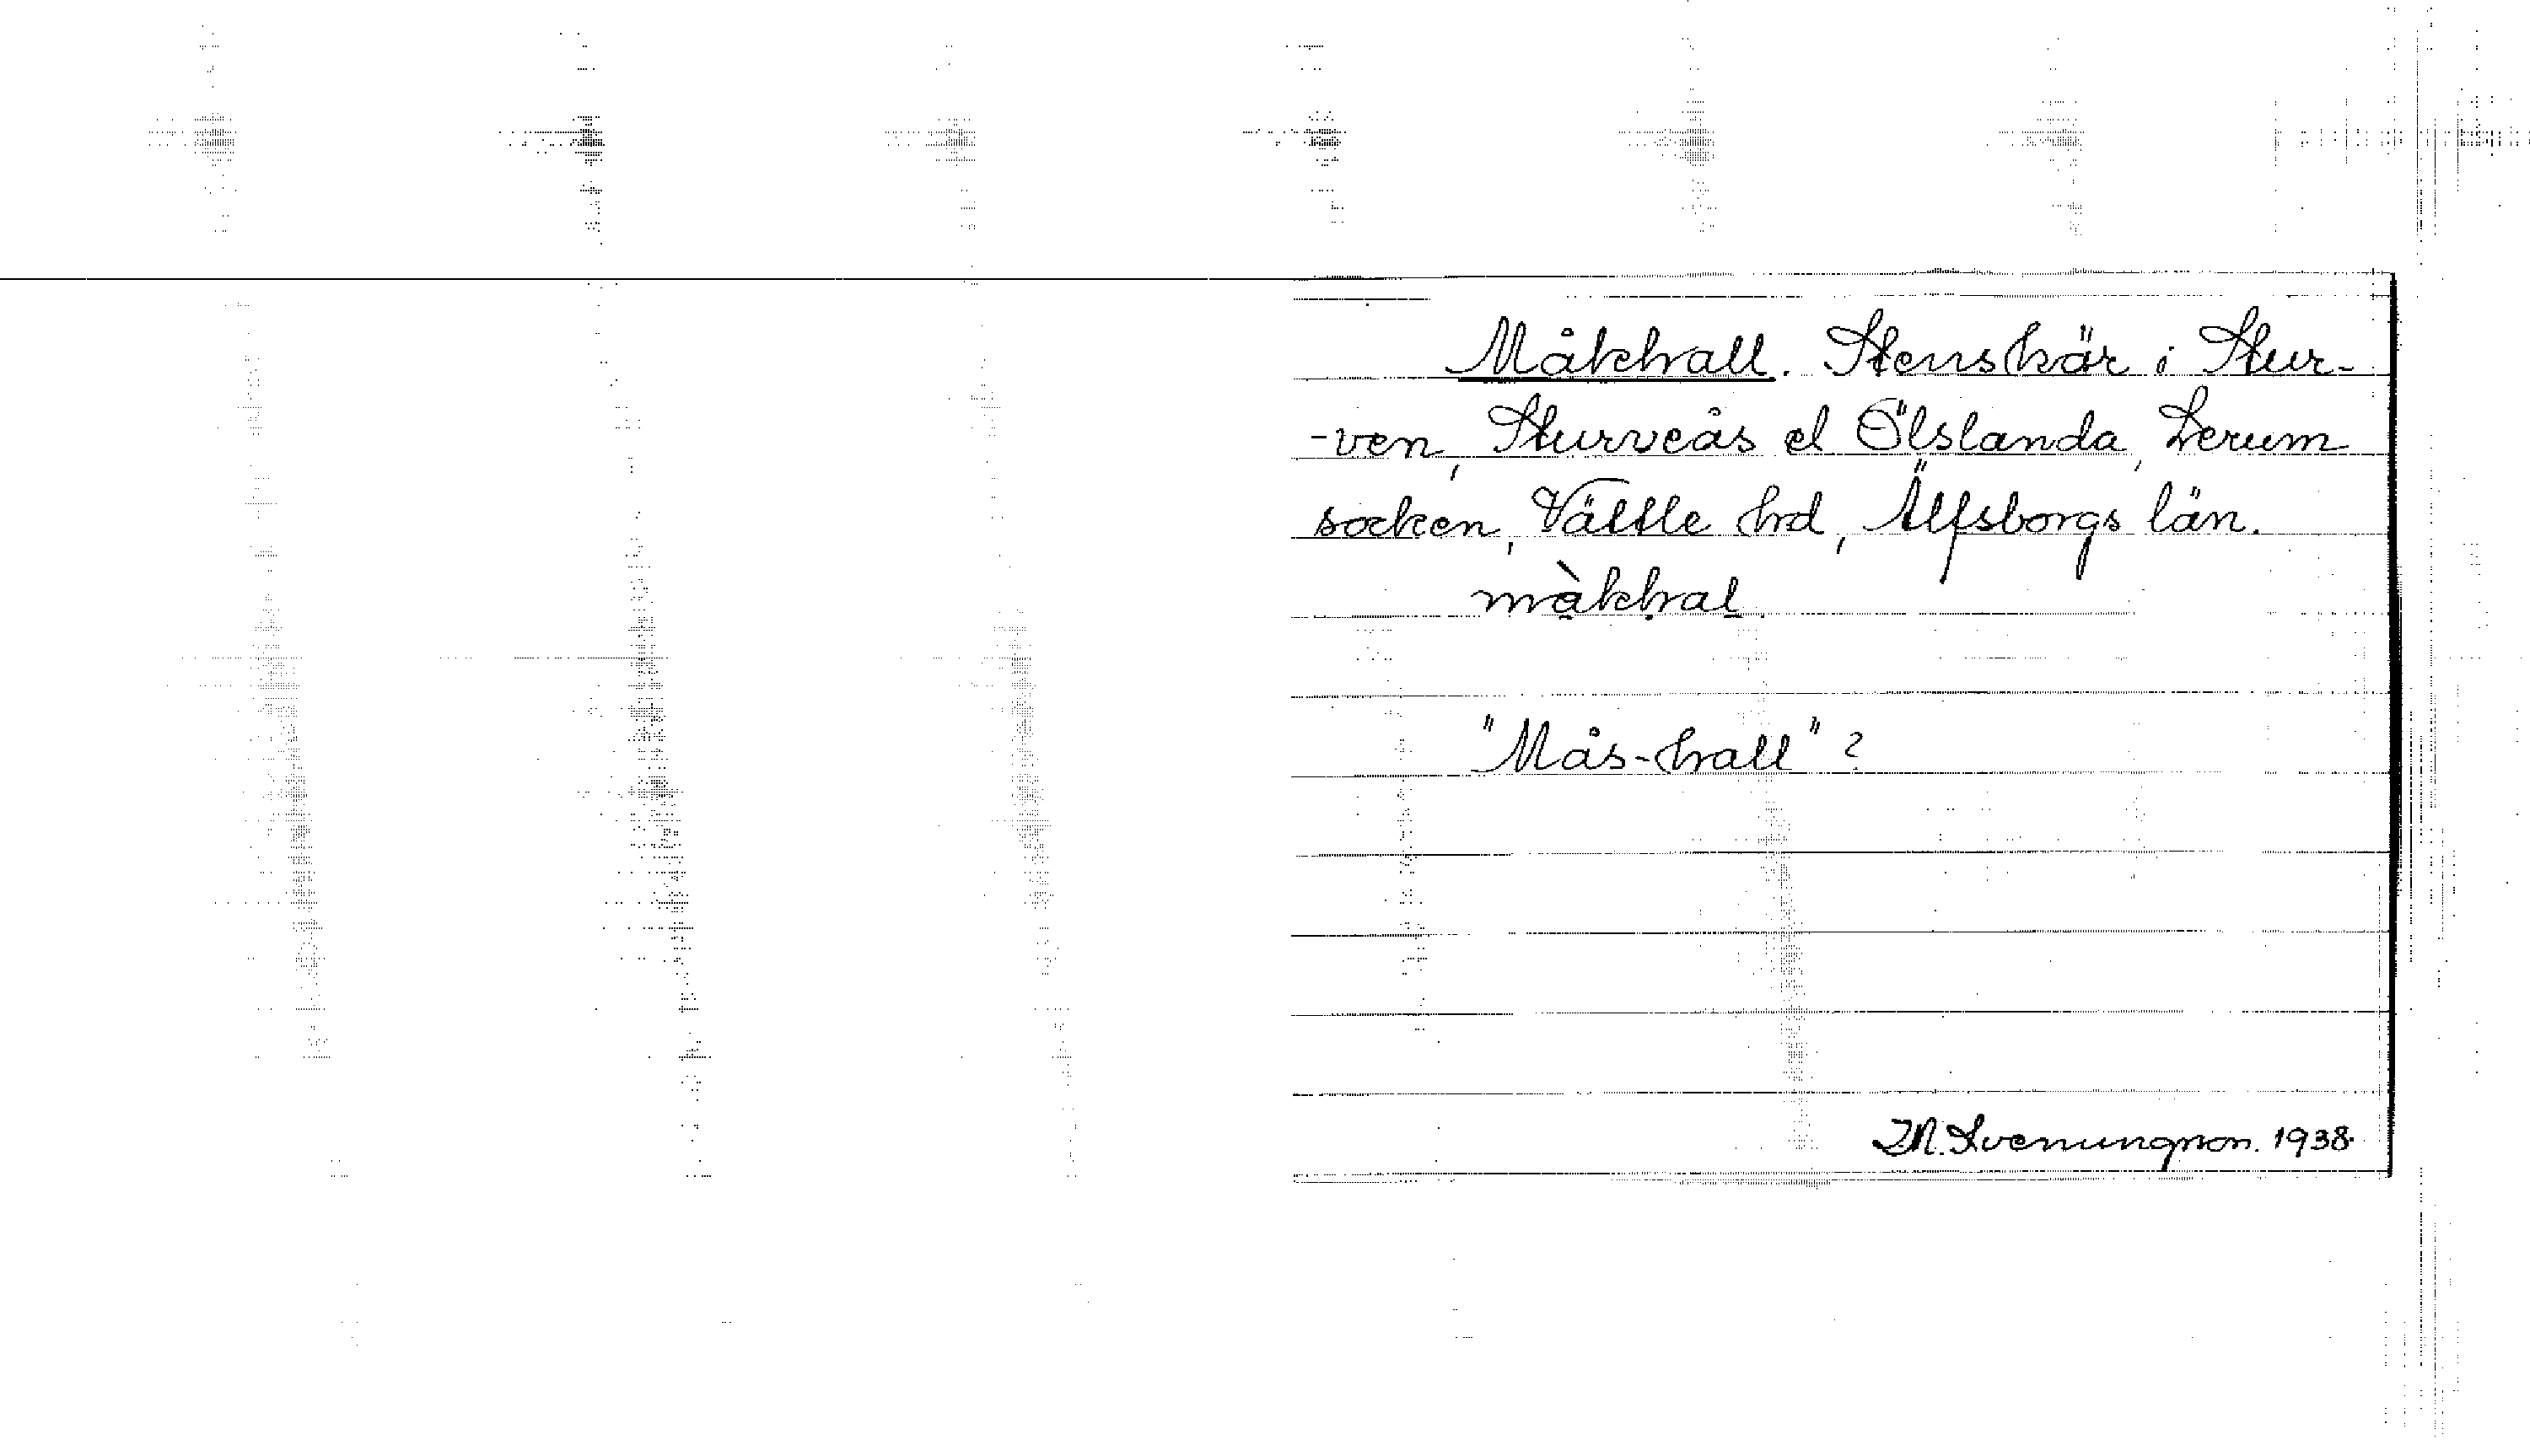 Måkhall. Stenskär i Stur-
-ven, Sturveås el Ölslanda, Lerum
socken, Vättle hrd, Älfsborgs län.
màkhal
"Mås-hall"?
I.M. Svenungsson. 1938